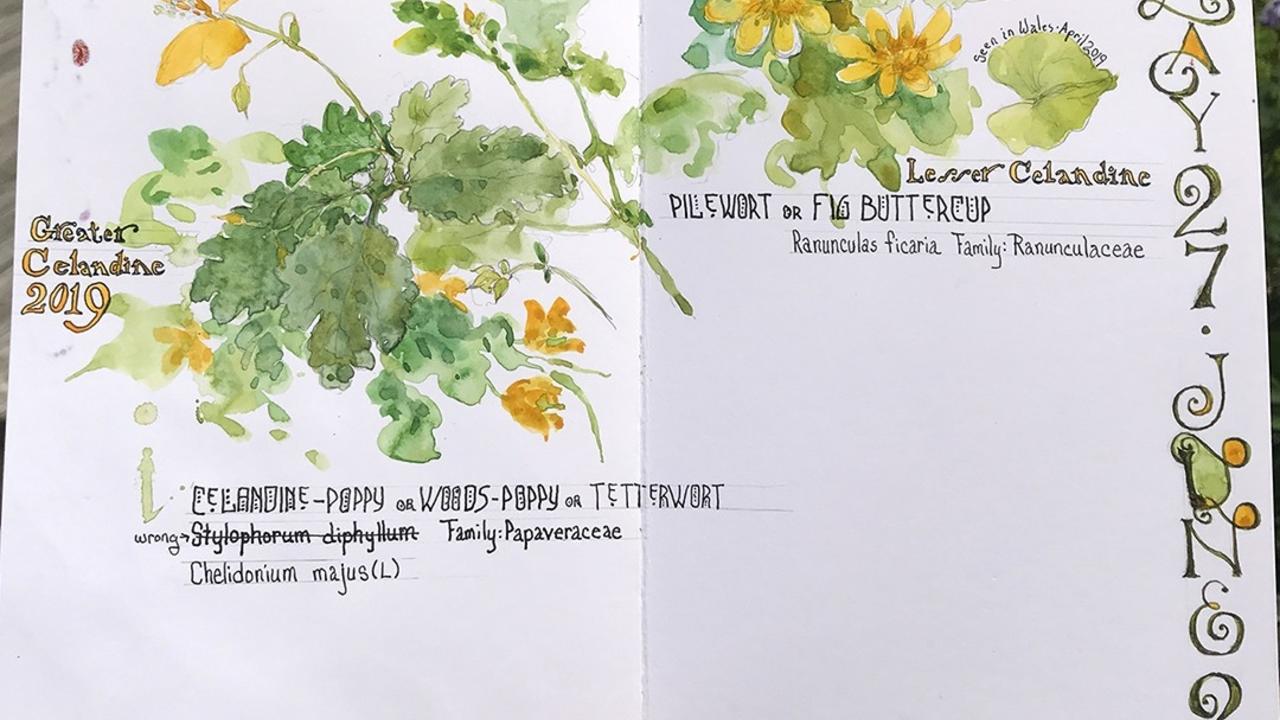 Seen in Wales·April 2019
Lesser Celandine
PILEWORT OR FIG BUTTERCUP
Ranunculas ficaria Family: Ranunculaceae
Greater
Celandine
2019
CELANDINE-POPPY OR WOODS-POPPY OR TETTERWORT
wrong→Stylophorum diphyllum Family: Papaveraceae
Chelidonium majus(L)
AY 27·JUNE